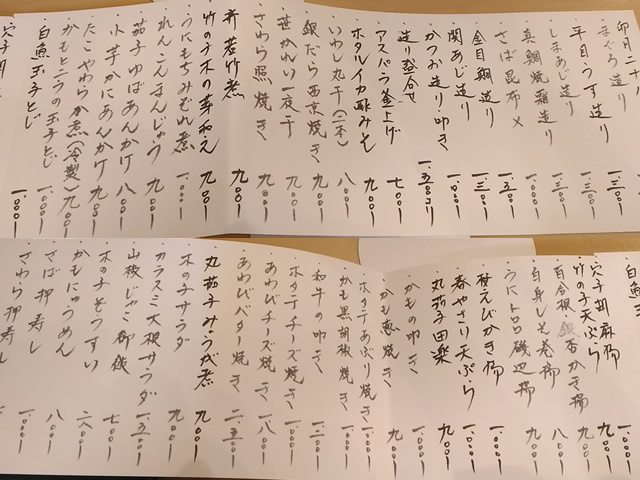 卯月二十八
まぐろ造り 一、三〇〇
平目うす造り 一、三〇〇
しまあじ造り 一、三〇〇
真鯛焼霜造り 一、〇〇〇
さば昆布〆 一、五〇〇
金目鯛造り 一、三〇〇
関あじ造り 一、〇〇〇
かつお造り・叩き
造り盛合せ 一、五〇〇より
アスパラ釜上げ 七〇〇
ホタルイカ酢みそ 九〇〇
いわし丸干(二本) 八〇〇
銀だら西京焼き 九〇〇
笹かれい一夜干 九〇〇
さわら照焼き 九〇〇
新若竹煮 九〇〇
竹の子木の芽和え 九〇〇
うにもちみぞれ煮 一、〇〇〇
れんこんまんじゅう 九〇〇
茄子ゆばあんかけ 八〇〇
小芋かにあんかけ 九〇〇
たこやわらか煮(冷製) 九〇〇
かもとニラの玉子とじ 一、〇〇〇
白魚玉子とじ 一、〇〇〇
白魚玉
穴子胡麻揚 九〇〇
竹の子天ぷら 九〇〇
百合根・銀杏かき揚 八〇〇
白身しそ巻揚 九〇〇
うにトロロ磯辺揚
桜えびかき揚 一、〇〇〇
春やさい天ぷら 一、〇〇〇
丸茄子田楽 九〇〇
かもの叩き 一、〇〇〇
かも葱焼き 九〇〇
ホタテあぶり焼き
かも黒胡椒焼き
和牛の叩き
ホタテチーズ焼き
あわびチーズ焼き 一、八〇〇
あわびバター焼き 二、五〇〇
丸茄子みょうが煮 九〇〇
木の子サラダ 九〇〇
カラスミ大根サラダ 一、五〇〇
山椒じゃこ御飯 七〇〇
木の子ぞうすい
かもにゅうめん
さば押寿し 八〇〇
さわら押寿し 一、〇〇〇